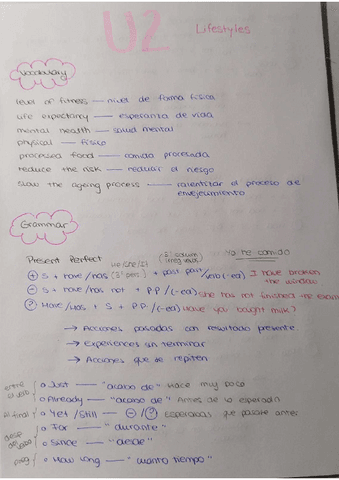 U2 Lifestyles
Vocabulary
level of fitness — nivel de forma física
life expectancy — esperanza de vida
mental health — salud mental
physical — físico
processed food — comida procesada
reduce the risk — reducir el riesgo
slow the ageing process — ralentizar el proceso de
envejecimiento
Grammar
Present Perfect
he/she/it
Yo he comido
(3ª pers)
+ S + have/has + past part/(-ed) I have broken
the window
- S + have/has not + P.P/(-ed) She has not finished the exam
? Have/Has + S + P.P/(-ed) Have you bought milk?
→ Acciones pasadas con resultado presente
→ Experiences sin terminar
→ Acciones que se repiten
Just — "acabo de" Hace muy poco
Already — "acabo de" Antes de lo esperado
Al final Yet/Still — -/? Esperabas que pasase antes
For — "durante"
Since — "desde"
How long — "cuanto tiempo"